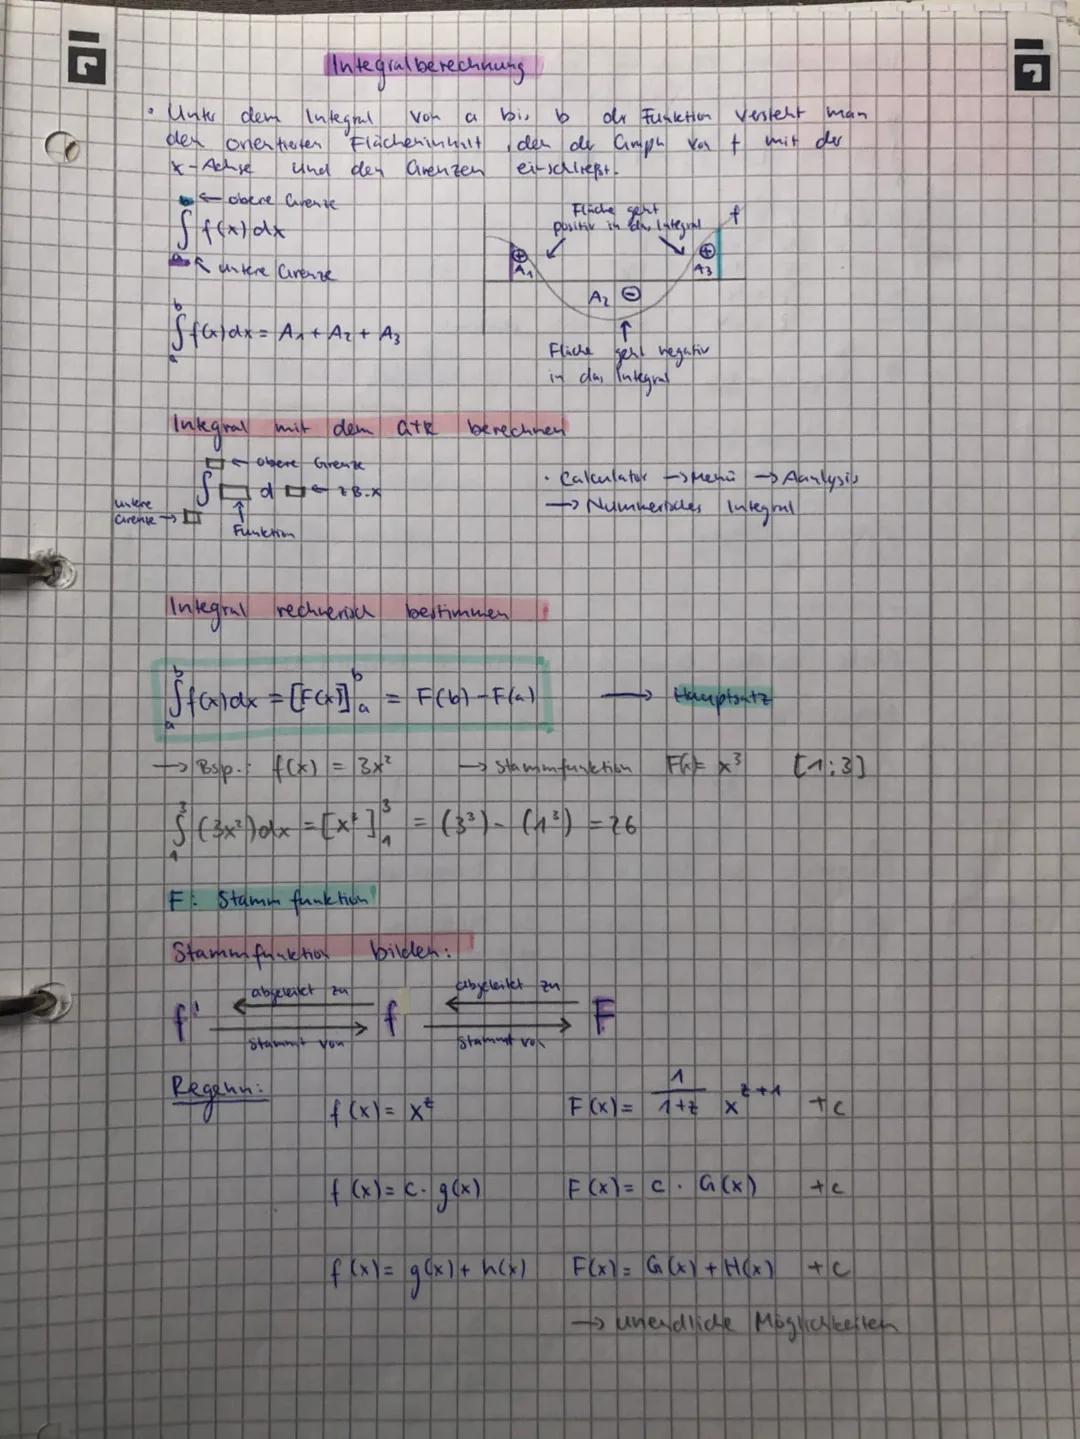 Integralberechnung
• Unter dem Integral von a bis b der Funktion versteht man
den orientierten Flächeninhalt, den der Graph von f mit der
x-Achse und den Grenzen einschließt.
b ← obere Grenze
∫ f(x)dx
a ← untere Grenze
Fläche geht
positiv in das Integral
f
⊕ A₁
⊕ A₃
A₂ ⊖
Fläche geht negativ
in das Integral
b
∫ f(x)dx = A₁ + A₂ + A₃
a
Integral mit dem GTR berechnen
← obere Grenze
∫ □ d □ ← z.B. x
untere
Grenze →
Funktion
• Calculator → Menü → Aanlysis
→ Nummerisches Integral
Integral rechnerisch bestimmen
∫ₐᵇ f(x)dx = [F(x)]ₐᵇ = F(b) - F(a) → Hauptsatz
→ Bsp.: f(x) = 3x² → Stammfunktion F(x)= x³ [1;3]
∫₁³ (3x²)dx = [x³]₁³ = (3³) - (1³) = 26
F: Stammfunktion
Stammfunktion bilden:
abgeleitet zu abgeleitet zu
f' f F
Stammt von Stammt von
Regeln:
f(x) = x^z F(x) = 1/(1+z) x^(z+1) + c
f(x) = c · g(x) F(x) = c · G(x) + c
f(x) = g(x) + h(x) F(x) = G(x) + H(x) + c
→ unendliche Möglichkeiten